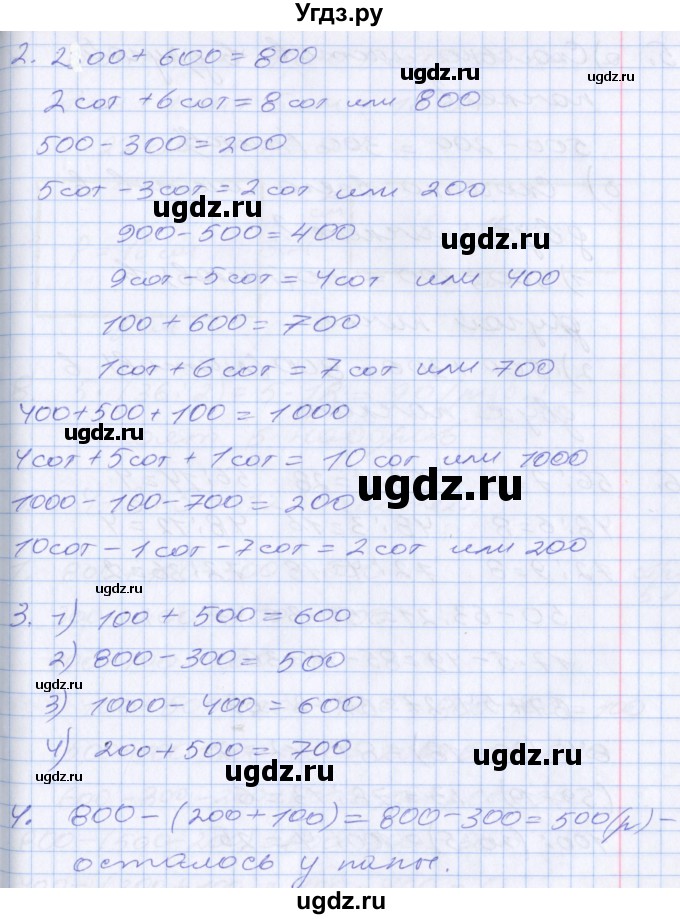 Угдз.ру
2. 200 + 600 = 800
ugdz.ru ugdz.ru
2 сот + 6 сот = 8 сот или 800
500 - 300 = 200
5 сот - 3 сот = 2 сот или 200
ugdz.ru
900 - 500 = 400
ugdz.ru
9 сот - 5 сот = 4 сот или 400
100 + 600 = 700
1 сот + 6 сот = 7 сот или 700
400 + 500 + 100 = 1000
ugdz.ru
4 сот + 5 сот + 1 сот = 10 сот или 1000
ugdz.ru
1000 - 100 - 700 = 200
10 сот - 1 сот - 7 сот = 2 сот или 200
ugdz.ru
3. 1) 100 + 500 = 600
2) 800 - 300 = 500
ugdz.ru
3) 1000 - 400 = 600
4) 200 + 500 = 700
ugdz.ru ugdz.ru ugdz.ru
4. 800 - (200 + 100) = 800 - 300 = 500 (р) -
осталось у папы.
ugdz.ru